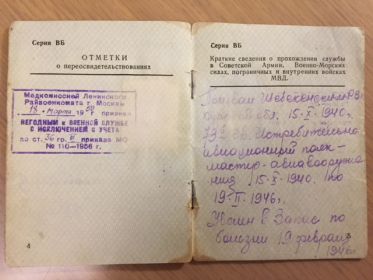 Серия ВБ
ОТМЕТКИ
о переосвидетельствованиях
Медкомиссией Ленинского
Райвоенкомата г. Москвы
13 Марта 19 г. признан
НЕГОДНЫМ к ВОЕННОЙ СЛУЖБЕ
С ИСКЛЮЧЕНИЕМ С УЧЕТА
по ст. 36 гр. приказа МО
№ 110—1956 г.
4
Серия ВБ
Краткие сведения о прохождении службы
в Советской Армии, Военно-Морских
силах, пограничных и внутренних войсках
МВД.
Призван
обл. 15-X-1940.
Истребительно
авиационный полк-
мастер-авиавооруже
ния 15-X-1940. по
19-II-1946г.
Уволен в Запас по
болезни 19 февраля
1946